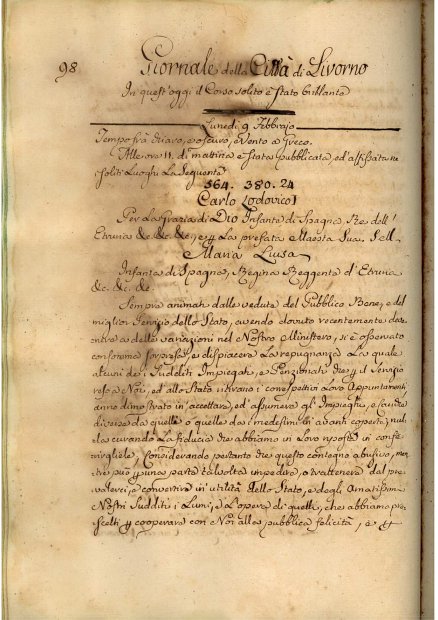 98
Giornale della Città di Livorno
In quest'oggi il Corso solito è stato brillante
Lunedì 9 Febbrajo
Tempo frà chiaro, e oscuro, e Vento a Greco.
Alle ore 11. di mattina è stata pubblicata, ed affissata ne
soliti Luoghi La Seguente
564. 380. 24
Carlo Lodovico I
Per La Grazia di Dio Infante di Spagna Re dell'
Etruria &c. &c. &c., e Maestà Sua
Maria Luisa
Infanta di Spagna, Regina Reggente d'Etruria
&c. &c. &c.
Sempre animati dalla veduta del Pubblico Bene, e del
miglior Servizio dello Stato, avendo dovuto recentemente dar
delle variazioni nel Nostro Ministero, si è osservato
con sorpresa, e dispiacere La repugnanza La quale
alcuni dei Sudditi Impiegati, e Pensionati che il Servizio
reso a Noi, ed allo Stato ritirano i correspettivi Loro Appuntamenti
anno dimostrato in accettare, ed assumere gl'Impieghi, e
diverse da quelle o quelle dai medesimi in avanti coperte; nul
La fiducia che abbiamo in Loro riposta in confe
rirgliele; Considerando pertanto che questo contegno abusivo,
tre può una parte talvolta impedire, o trattenere dal
valerci, e convertire in utilità dello Stato, e degli Amatissimi
Nostri Sudditi i Lumi, e L'opera di quelli, che abbiamo pre
scelti cooperare con Noi alla pubblica felicità, e